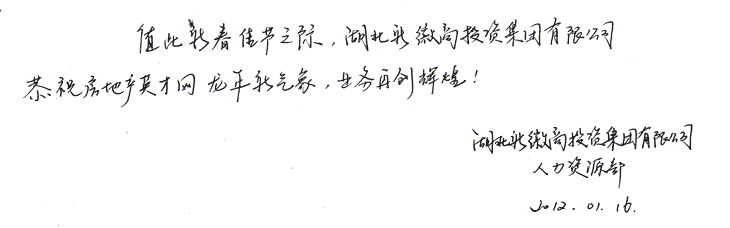 值此新春佳节之际，湖北新徽商投资集团有限公司
恭祝房地产英才网龙年新气象，业务再创辉煌！
湖北新徽商投资集团有限公司
人力资源部
2012.01.16.